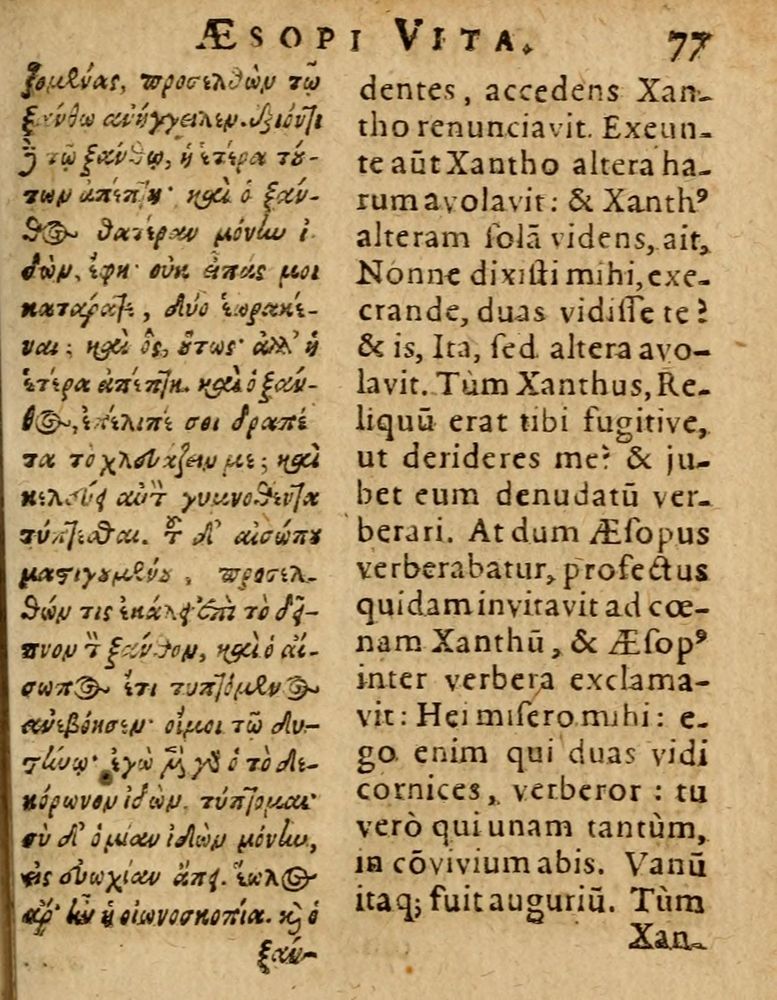 ÆSOPI VITA. 77
ζομένας, προσελθὼν τῷ
ξάνθῳ ἀνήγγειλεν. ἐξιόντι
ȣ̓͂ τῷ ξάνθῳ, ἡ ἑτέρα τού-
των ἀπέπτη· καὶ ὁ ξάν-
θος θατέραν μόνην ἰ-
δὼν, ἔφη· οὐκ εἶπάς μοι
κατάρατε, δύο ἑωρακέ-
ναι; καὶ ὃς, οὕτως· ἀλλ' ἡ
ἑτέρα ἀπέπτη. καὶ ὁ ξάν-
θος, ἐπέλιπέ σοι δραπέ
τα τὸ χλευάζειν με; καὶ
κελεύει αὐτὸν γυμνωθέντα
τύπτεσθαι. τοῦ δ' αἰσώπου
μαστιγουμένου, προσελ-
θών τις ἐκάλει ἐπὶ τὸ δεῖ-
πνον τὸν ξάνθον, καὶ ὁ αἴ-
σωπος ἔτι τυπτόμενος
ἀνεβόησεν· οἴμοι τῷ δυ-
στήνῳ· ἐγὼ μὲν γὰρ ὁ τὸ δι-
κόρωνον ἰδὼν, τύπτομαι·
σὺ δ' ὁ μίαν ἰδὼν μόνην,
εἰς εὐωχίαν ἄπει. ἕωλος
ἄρ' ἦν ἡ οἰωνοσκοπία. καὶ ὁ
ξάν-
dentes, accedens Xan-
tho renunciavit. Exeun-
te aūt Xantho altera ha-
rum avolavit: & Xanthꝰ
alteram ſolā videns, ait,
Nonne dixiſti mihi, exe-
crande, duas vidiſſe te?
& is, Ita, ſed altera avo-
lavit. Tùm Xanthus, Re-
liquū erat tibi fugitive,
ut derideres me? & ju-
bet eum denudatū ver-
berari. At dum Æſopus
verberabatur, profectus
quidam invitavit ad cœ-
nam Xanthū, & Æſopꝰ
inter verbera exclama-
vit: Hei miſero mihi: e-
go enim qui duas vidi
cornices, verberor: tu
verò qui unam tantùm,
in cōvivium abis. Vanū
itaq; fuit auguriū. Tùm
Xan-